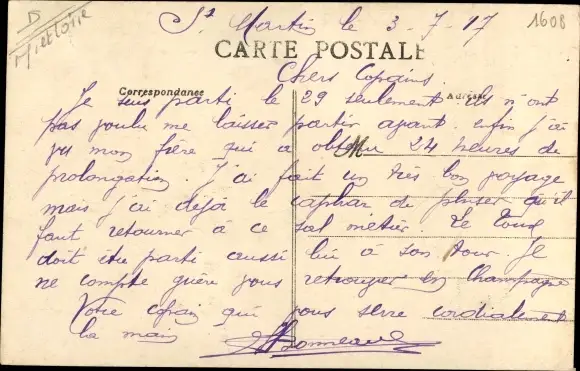 D
St Martin le 3-7-17
1608
CARTE POSTALE
Chers Copains
Correspondance
Adresse
Je suis parti le 29 seulement ils n'ont
pas voulu me laisser partir avant. enfin j'ai
vu mon frère qui a obtenu 24 heures de
prolongation. J'ai fait un très bon voyage
mais j'ai déjà le caphar de penser qu'il
faut retourner à ce sal métier. Le
doit être parti aussi lui à son tour. Je
ne compte guère vous retrouver en Champagne
Votre copain qui vous serre cordialement
la main